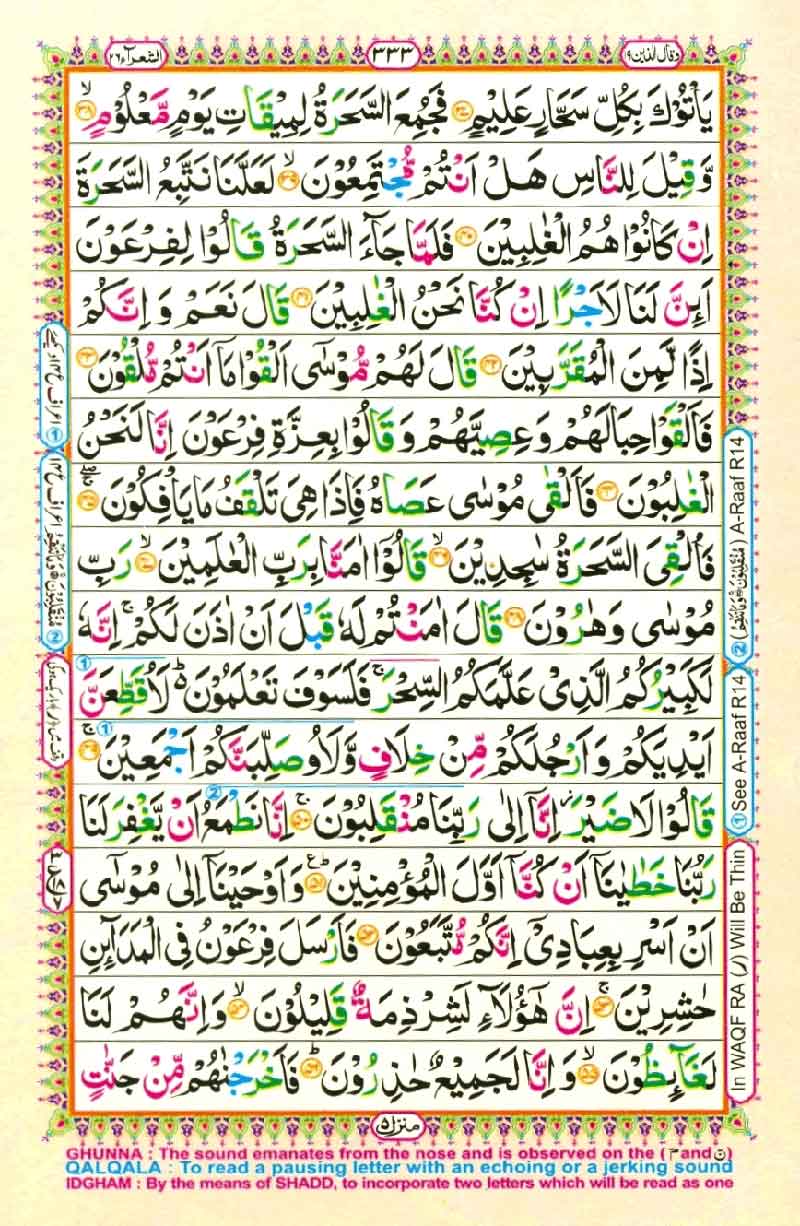 وقال الذین ۱۹
۳۳۳
الشعرآء ۲۶
یَاْتُوْكَ بِكُلِّ سَحَّارٍ عَلِیْمٍ ۳۷ فَجُمِعَ السَّحَرَةُ لِمِیْقَاتِ یَوْمٍ مَّعْلُوْمٍۙ ۳۸
وَّقِیْلَ لِلنَّاسِ هَلْ اَنْتُمْ مُّجْتَمِعُوْنَۙ ۳۹ لَعَلَّنَا نَتَّبِعُ السَّحَرَةَ
اِنْ كَانُوْا هُمُ الْغٰلِبِیْنَ ۴۰ فَلَمَّا جَآءَ السَّحَرَةُ قَالُوْا لِفِرْعَوْنَ
اَئِنَّ لَنَا لَاَجْرًا اِنْ كُنَّا نَحْنُ الْغٰلِبِیْنَ ۴۱ قَالَ نَعَمْ وَ اِنَّكُمْ
اِذًا لَّمِنَ الْمُقَرَّبِیْنَ ۴۲ قَالَ لَهُمْ مُّوْسٰۤی اَلْقُوْا مَاۤ اَنْتُمْ مُّلْقُوْنَ ۴۳
فَاَلْقَوْا حِبَالَهُمْ وَ عِصِیَّهُمْ وَ قَالُوْا بِعِزَّةِ فِرْعَوْنَ اِنَّا لَنَحْنُ
الْغٰلِبُوْنَ ۴۴ فَاَلْقٰی مُوْسٰی عَصَاهُ فَاِذَا هِیَ تَلْقَفُ مَا یَاْفِكُوْنَۚۖ ۴۵
فَاُلْقِیَ السَّحَرَةُ سٰجِدِیْنَۙ ۴۶ قَالُوْۤا اٰمَنَّا بِرَبِّ الْعٰلَمِیْنَۙ ۴۷ رَبِّ
مُوْسٰی وَ هٰرُوْنَ ۴۸ قَالَ اٰمَنْتُمْ لَهٗ قَبْلَ اَنْ اٰذَنَ لَكُمْۚ اِنَّهٗ
لَكَبِیْرُكُمُ الَّذِیْ عَلَّمَكُمُ السِّحْرَۚ فَلَسَوْفَ تَعْلَمُوْنَ۬ؕ لَاُقَطِّعَنَّ
اَیْدِیَكُمْ وَ اَرْجُلَكُمْ مِّنْ خِلَافٍ وَّ لَاُوصَلِّبَنَّكُمْ اَجْمَعِیْنَۚ ۴۹
قَالُوْا لَا ضَیْرَؗ اِنَّاۤ اِلٰی رَبِّنَا مُنْقَلِبُوْنَۚ ۵۰ اِنَّا نَطْمَعُ اَنْ یَّغْفِرَ لَنَا
رَبُّنَا خَطٰیٰنَاۤ اَنْ كُنَّاۤ اَوَّلَ الْمُؤْمِنِیْنَؕ۠ ۵۱ وَ اَوْحَیْنَاۤ اِلٰی مُوْسٰۤی
اَنْ اَسْرِ بِعِبَادِیْۤ اِنَّكُمْ مُّتَّبَعُوْنَ ۵۲ فَاَرْسَلَ فِرْعَوْنُ فِی الْمَدَآئِنِ
حٰشِرِیْنَۚ ۵۳ اِنَّ هٰۤؤُلَآءِ لَشِرْذِمَةٌ قَلِیْلُوْنَۙ ۵۴ وَ اِنَّهُمْ لَنَا
لَغَآئِظُوْنَۙ ۵۵ وَ اِنَّا لَجَمِیْعٌ حٰذِرُوْنَؕ ۵۶ فَاَخْرَجْنٰهُمْ مِّنْ جَنّٰتٍ
منزل ۵
② (مُنْقَلِبُوْنَ وَمَا تَنْقِمُ) A-Raaf R14
① See A-Raaf R14
In WAQF RA (ر) Will Be Thin
GHUNNA : The sound emanates from the nose and is observed on the (م and ن)
QALQALA : To read a pausing letter with an echoing or a jerking sound
IDGHAM : By the means of SHADD, to incorporate two letters which will be read as one